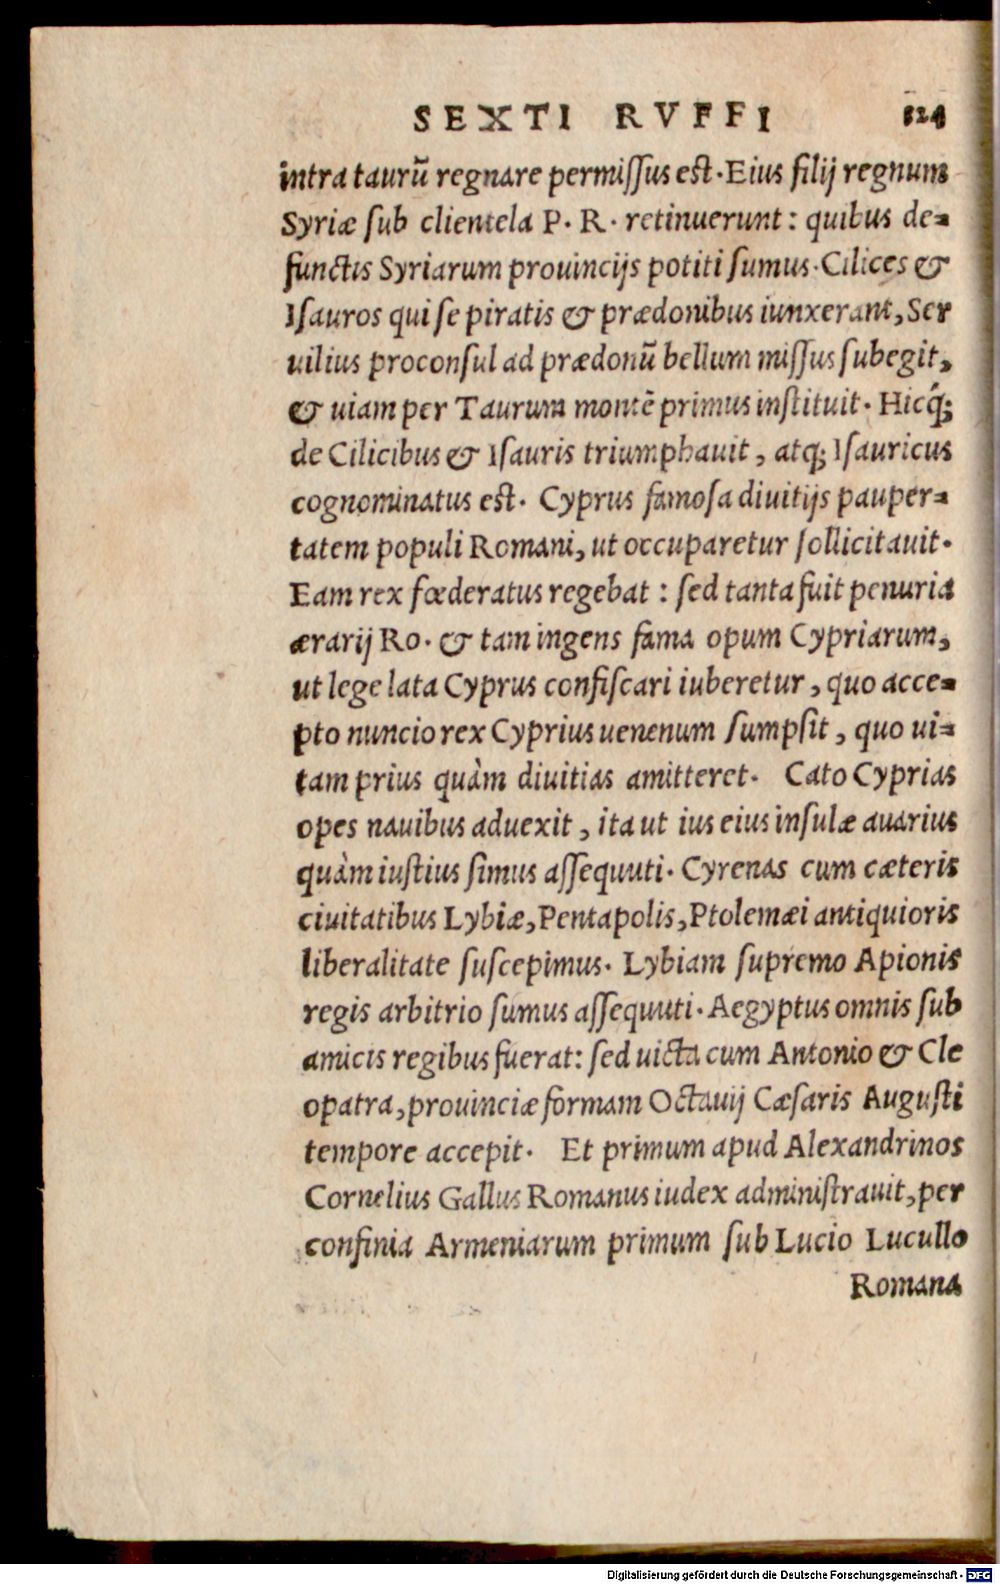 SEXTI RVFFI 124
intra taurũ regnare permissus est. Eius filij regnum
Syriæ sub clientela P. R. retinuerunt: quibus de=
functis Syriarum prouincijs potiti sumus. Cilices &
Isauros qui se piratis & prædonibus iunxerant, Ser
uilius proconsul ad prædonũ bellum missus subegit,
& uiam per Taurum montẽ primus instituit. Hicq́;
de Cilicibus & Isauris triumphauit, atq; Isauricus
cognominatus est. Cyprus famosa diuitijs pauper=
tatem populi Romani, ut occuparetur sollicitauit.
Eam rex fœderatus regebat: sed tanta fuit penuria
ærarij Ro. & tam ingens fama opum Cypriarum,
ut lege lata Cyprus confiscari iuberetur, quo acce=
pto nuncio rex Cyprius uenenum sumpsit, quo ui=
tam prius quàm diuitias amitteret. Cato Cyprias
opes nauibus aduexit, ita ut ius eius insulæ auarius
quàm iustius simus assequuti. Cyrenas cum cæteris
ciuitatibus Lybiæ, Pentapolis, Ptolemæi antiquioris
liberalitate suscepimus. Lybiam supremo Apionis
regis arbitrio sumus assequuti. Aegyptus omnis sub
amicis regibus fuerat: sed uicta cum Antonio & Cle
opatra, prouinciæ formam Octauij Cæsaris Augusti
tempore accepit. Et primum apud Alexandrinos
Cornelius Gallus Romanus iudex administrauit, per
confinia Armeniarum primum sub Lucio Lucullo
Romana
Digitalisierung gefördert durch die Deutsche Forschungsgemeinschaft - DFG